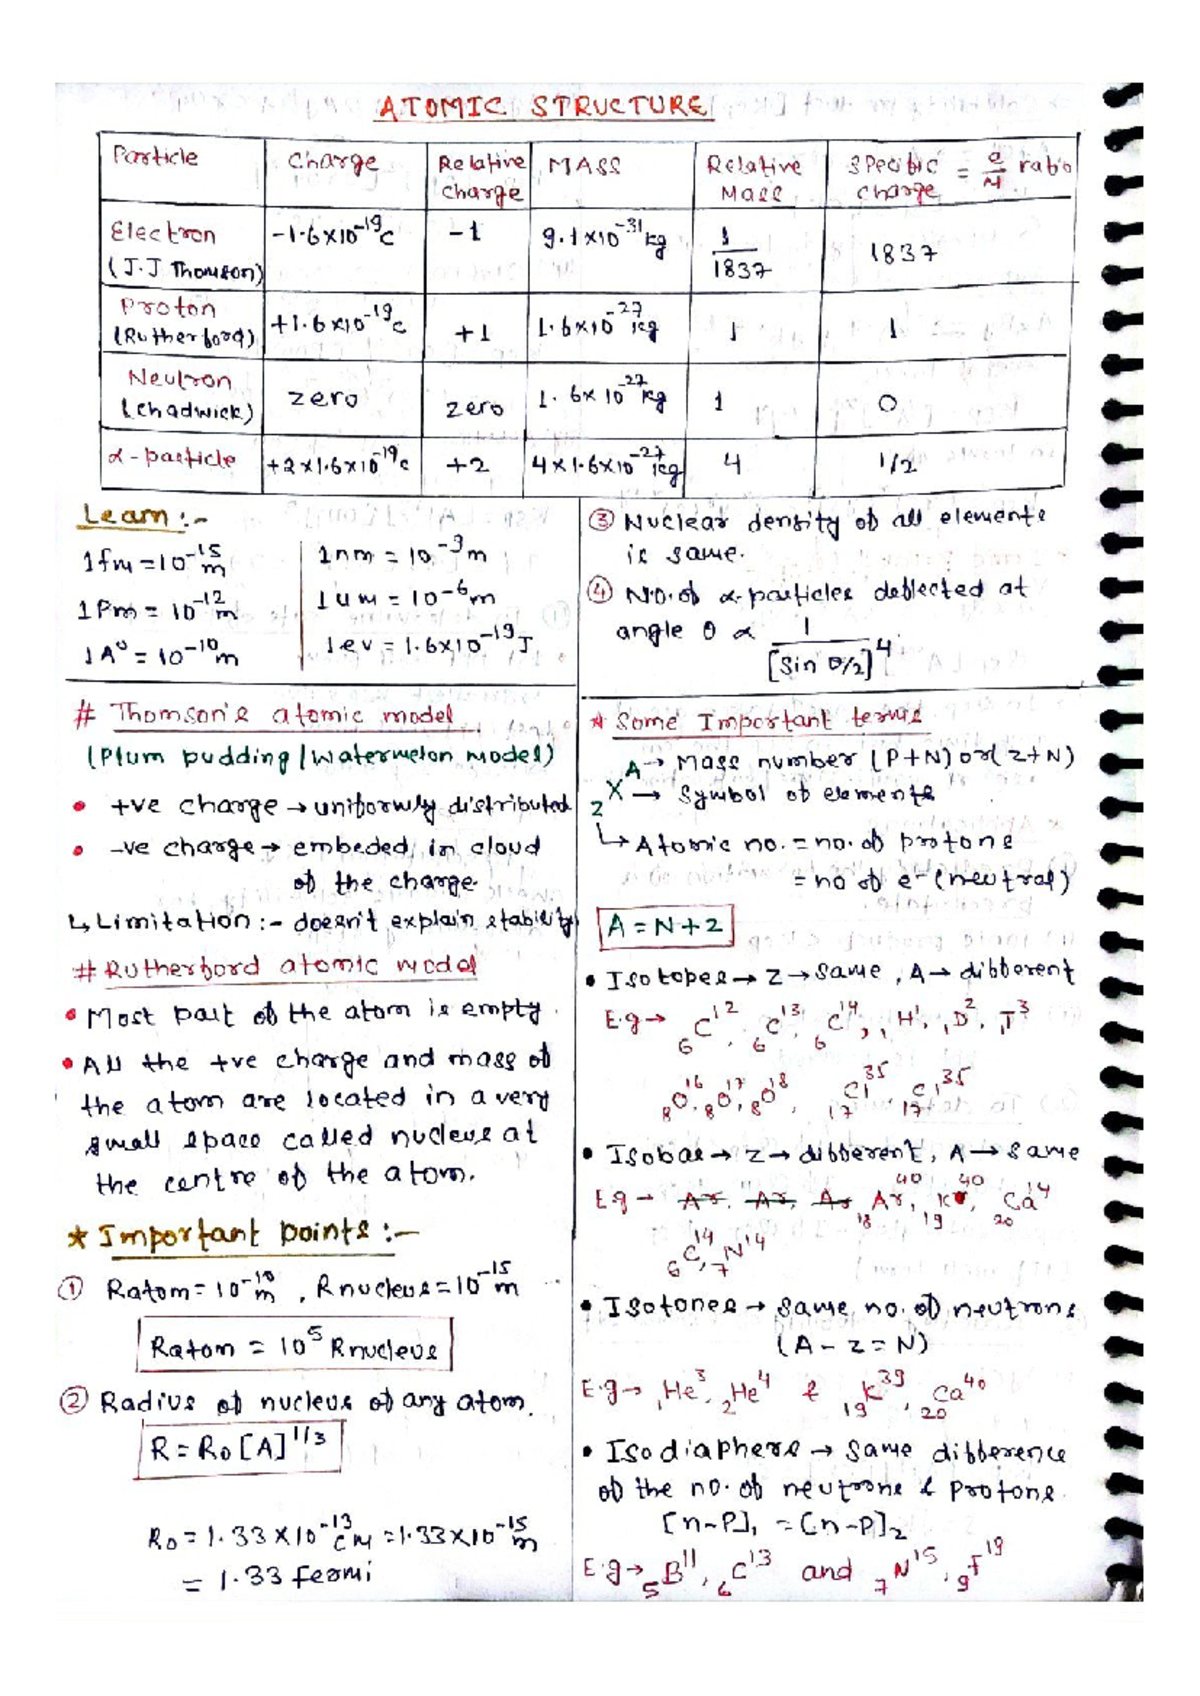 ATOMIC STRUCTURE
Particle | Charge | Relative Charge | MASS | Relative Mass | Specific charge = e/M ratio
Electron (J.J Thomson) | -1.6×10⁻¹⁹C | -1 | 9.1×10⁻³¹kg | 1/1837 | 1837
Proton (Rutherford) | +1.6×10⁻¹⁹C | +1 | 1.6×10⁻²⁷kg | 1 | 1
Neutron (chadwick) | zero | zero | 1.6×10⁻²⁷kg | 1 | 0
α-particle | +2×1.6×10⁻¹⁹C | +2 | 4×1.6×10⁻²⁷kg | 4 | 1/2
Learn :-
1fm = 10⁻¹⁵m
1Pm = 10⁻¹²m
1A° = 10⁻¹⁰m
1nm = 10⁻⁹m
1um = 10⁻⁶m
1ev = 1.6×10⁻¹⁹J
# Thomson's atomic model
(Plum pudding/watermelon model)
• +ve charge → uniformly distributed
• -ve charge → embeded in cloud
of the charge.
↳ Limitation :- doesn't explain stability
# Rutherford atomic model
• Most part of the atom is empty.
• All the +ve charge and mass of
the atom are located in a very
small space called nucleus at
the centre of the atom.
★ Important points :-
① Ratom = 10⁻¹⁰m , Rnucleus = 10⁻¹⁵m
Ratom = 10⁵ Rnucleus
② Radius of nucleus of any atom.
R = R₀[A]¹/³
R₀ = 1.33×10⁻¹³cm = 1.33×10⁻¹⁵m
= 1.33 fermi
③ Nuclear density of all elements
is same.
④ No. of α-particles deflected at
angle θ ∝ 1/[Sin θ/2]⁴
★ Some Important terms
A → Mass number (P+N) or (Z+N)
X → Symbol of elements
Z
↳ Atomic no. = no. of protons
= no of e⁻ (neutral)
A = N+Z
• Isotopes → Z → same , A → different
E.g → ₆C¹², ₆C¹³, ₆C¹⁴, ₁H¹, ₁D², ₁T³
₈O¹⁶, ₈O¹⁷, ₈O¹⁸, ₁₇Cl³⁵, ₁₇Cl³⁵
• Isobar → Z → different, A → same
E.g → Ar, Ar, Ar ₁₈Ar⁴⁰, ₁₉K⁴⁰, ₂₀Ca¹⁴
₆C¹⁴, ₇N¹⁴
• Isotones → same no. of neutrons
(A - Z = N)
E.g → ₁He³, ₂He⁴ & ₁₉K³⁹, ₂₀Ca⁴⁰
• Isodiaphers → same difference
of the no. of neutrons & Protons.
[n-P]₁ = [n-P]₂
E.g → ₅B¹¹, ₆C¹³ and ₇N¹⁵, ₉F¹⁹